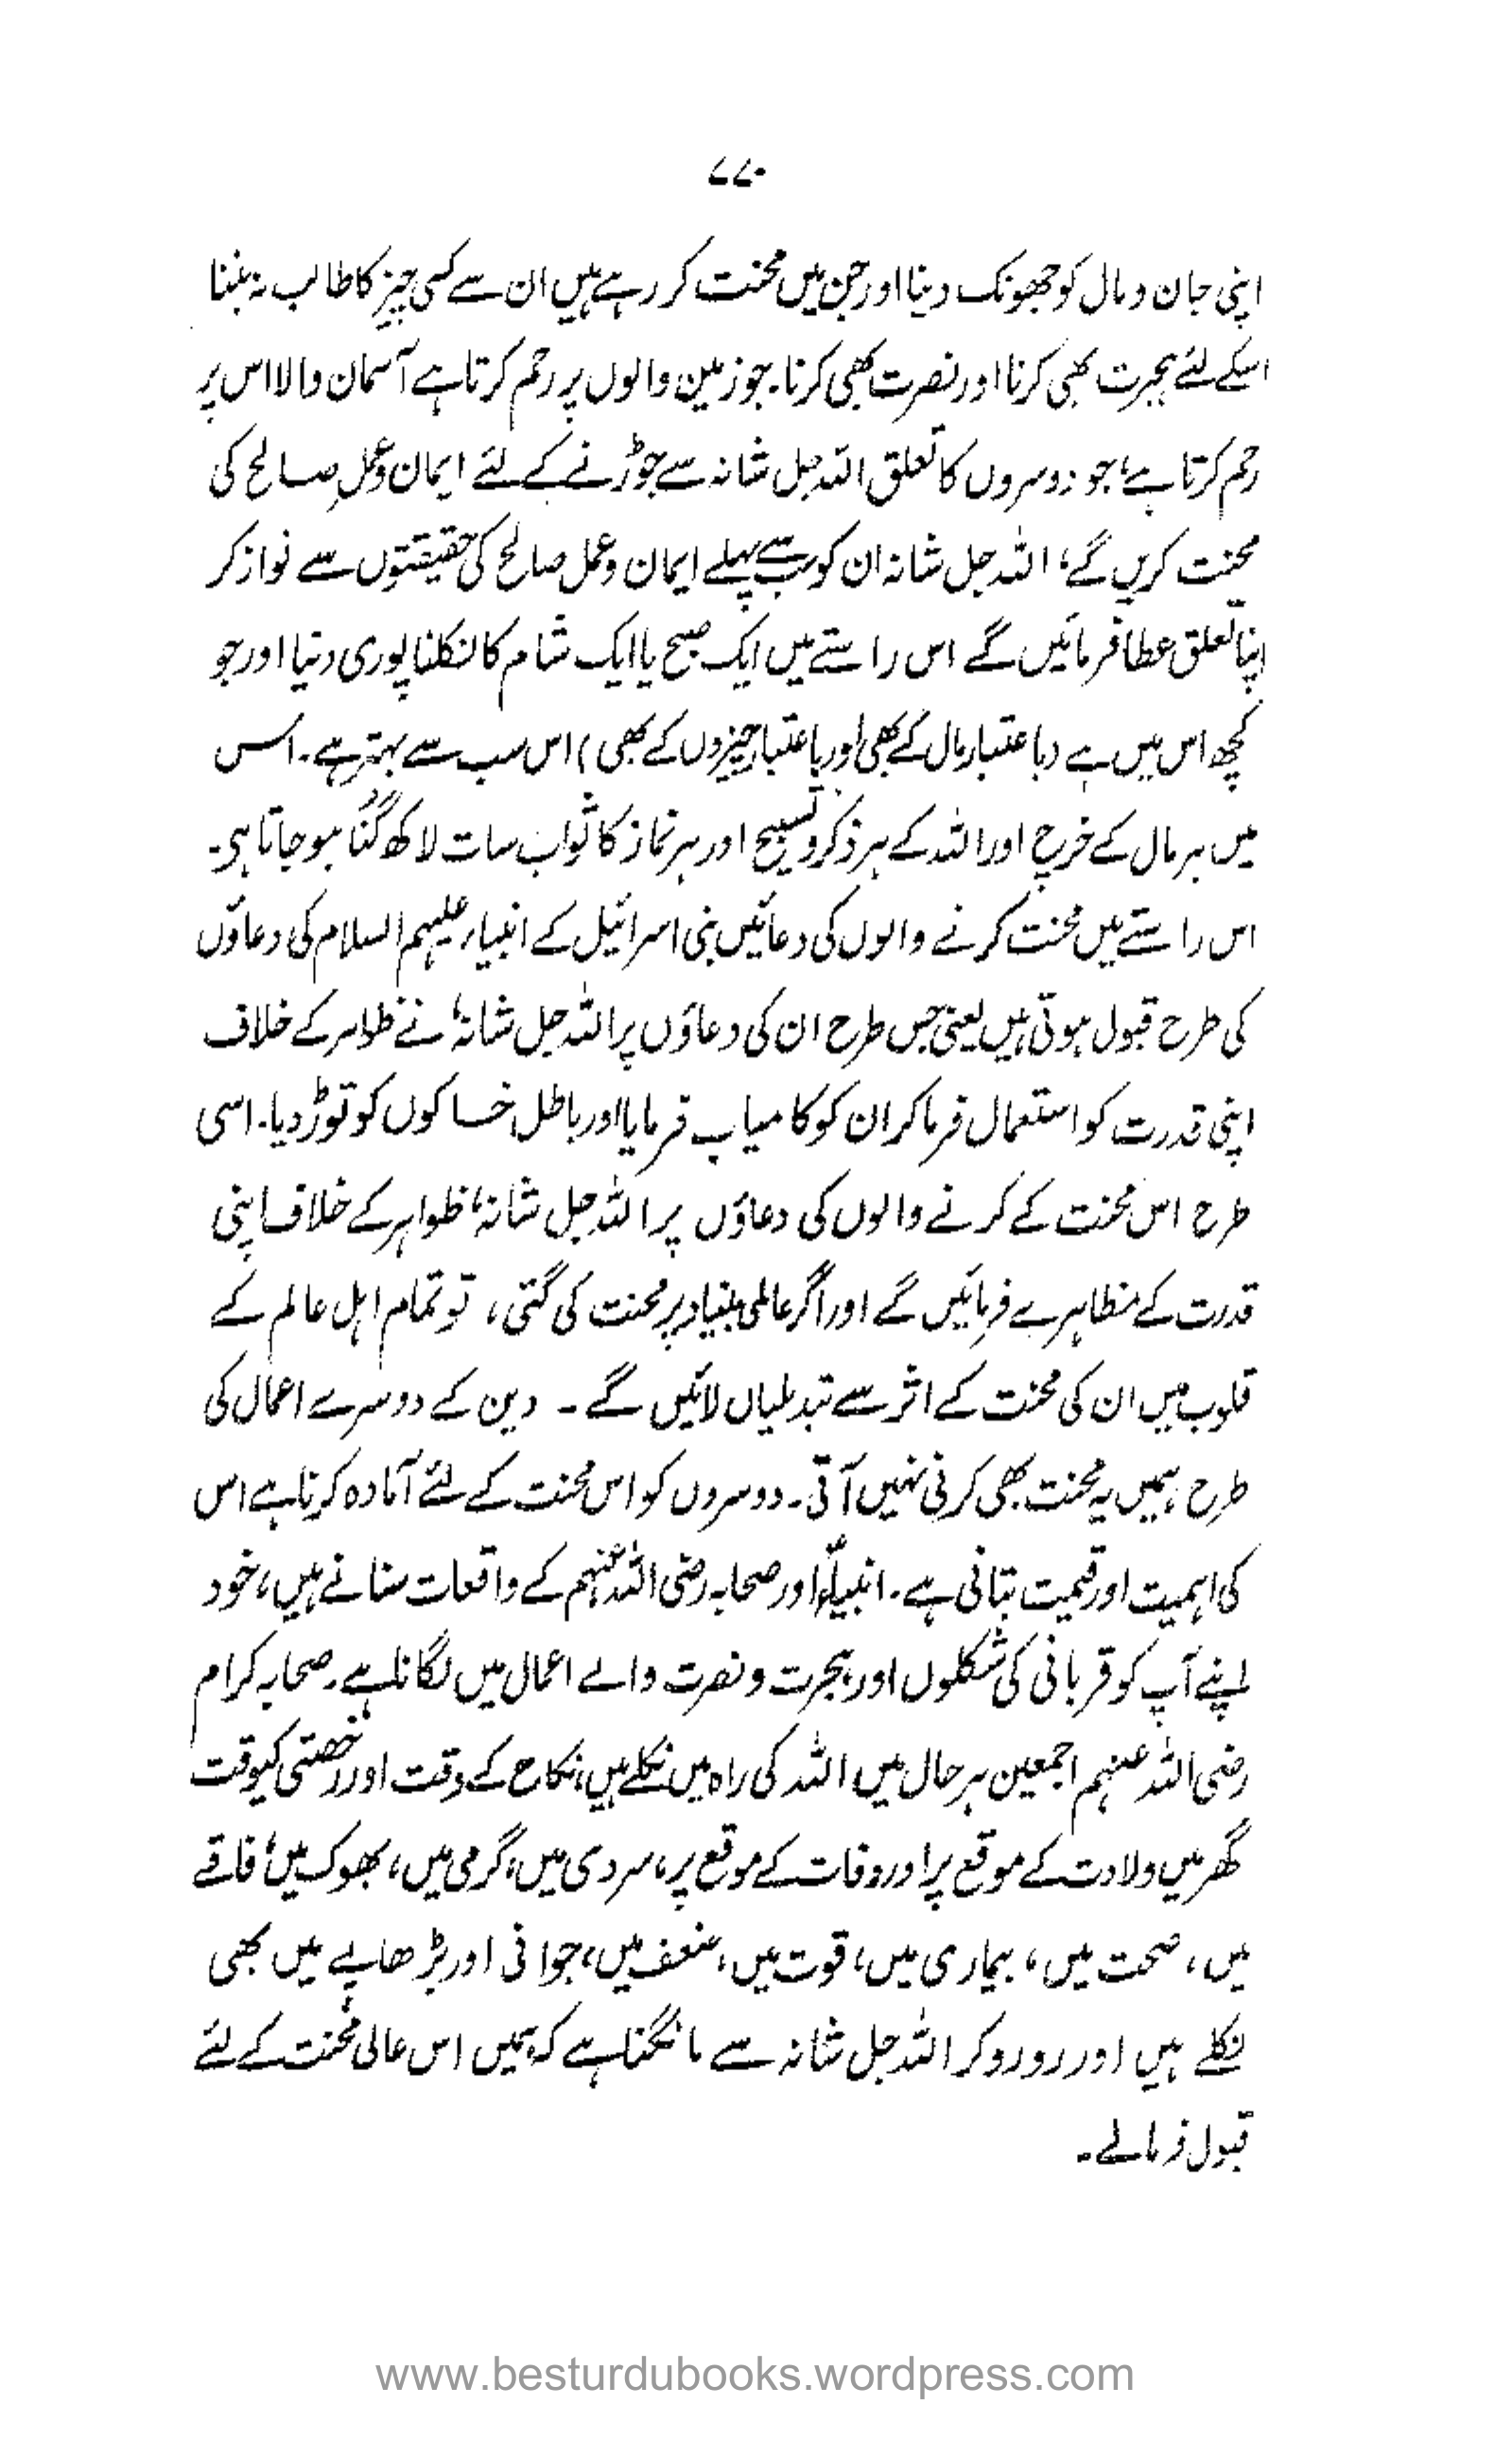 ۷۷۰
اپنی جان و مال کو جھونک دینا اور جن میں محنت کر رہے ہیں ان سے کسی چیز کا طالب نہ بننا
اسکے لئے ہجرت بھی کرنا اور نصرت بھی کرنا۔ جو زمین والوں پر رحم کرتا ہے آسمان والا اس پر
رحم کرتا ہے، جو دوسروں کا تعلق اللہ جل شانہ سے جوڑنے کے لئے ایمان و عملِ صالح کی
محنت کریں گے، اللہ جل شانہ ان کو سب سے پہلے ایمان و عمل صالح کی حقیقتوں سے نواز کر
اپنا تعلق عطا فرمائیں گے اس راستے میں ایک صبح یا ایک شام کا نکلنا پوری دنیا اور جو
کچھ اس میں ہے (با عتبار مال کے بھی اور با عتبار چیزوں کے بھی) اس سب سے بہتر ہے۔ اس
میں ہر مال کے خرچ اور اللہ کے ہر ذکر و تسبیح اور ہر نماز کا ثواب سات لاکھ گُنا ہو جاتا ہی۔
اس راستے میں محنت کرنے والوں کی دعائیں بنی اسرائیل کے انبیاء علیہم السلام کی دعاؤں
کی طرح قبول ہوتی ہیں یعنی جس طرح ان کی دعاؤں پر اللہ جل شانہٗ نے ظواہر کے خلاف
اپنی قدرت کو استعمال فرما کر ان کو کامیاب فرمایا اور باطل خاکوں کو توڑ دیا۔ اسی
طرح اس محنت کے کرنے والوں کی دعاؤں پر اللہ جل شانہٗ ظواہر کے خلاف اپنی
قدرت کے مظاہرے فرمائیں گے اور اگر عالمی بنیاد پر محنت کی گئی، تو تمام اہل عالم کے
قلوب میں ان کی محنت کے اثر سے تبدیلیاں لائیں گے ۔ دین کے دوسرے اعمال کی
طرح ہمیں یہ محنت بھی کرنی نہیں آتی۔ دوسروں کو اس محنت کے لئے آمادہ کرنا ہے اس
کی اہمیت اور قیمت بتانی ہے۔ انبیاءؑ اور صحابہ رضی اللہ عنہم کے واقعات سنانے ہیں، خود
اپنے آپ کو قربانی کی شکلوں اور ہجرت و نصرت والے اعمال میں لگانا ہے۔ صحابہ کرام
رضی اللہ عنہم اجمعین ہر حال میں اللہ کی راہ میں نکلے ہیں، نکاح کے وقت اور رخصتی کیوقت
گھر میں ولادت کے موقع پر اور وفات کے موقع پر، سردی میں، گرمی میں، بھوک میں، فاقے
میں، صحت میں، بیماری میں، قوت میں، ضعف میں، جوانی اور بڑھاپے میں بھی
نکلے ہیں اور رو رو کر اللہ جل شانہ سے مانگنا ہے کہ ہمیں اس عالی محنت کے لئے
قبول فرمالے۔
www.besturdubooks.wordpress.com